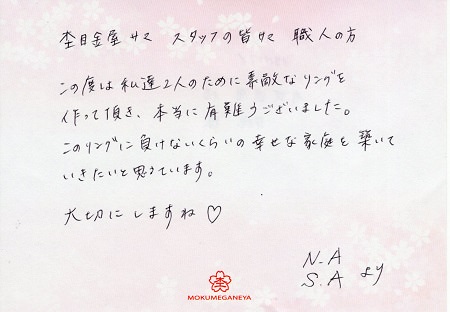 杢目金屋サマ スタッフの皆サマ 職人の方
この度は私達2人のために素敵なリングを
作って頂き、本当に有難うございました。
このリングに負けないくらいの幸せな家庭を築いて
いきたいと思っています。
大切にしますね♡
N.A
S.A より
杢
MOKUMEGANEYA